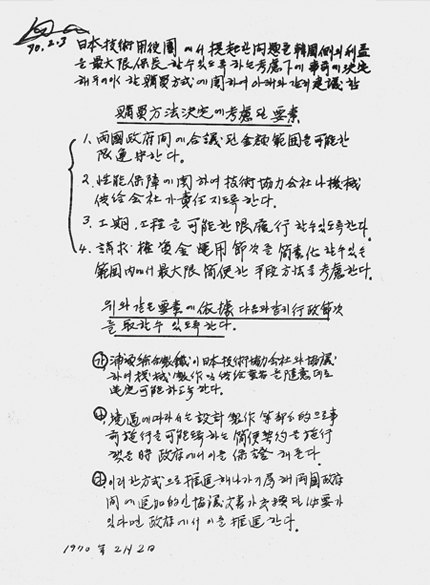 70.2.3
日本技術用役團에서 提起한 问題을 韓國側의 利益
을 最大限 保長할수있도록 하는 考慮下에 事前에 決定
해두어야할 購買方式에 関하여 아래와 같이 建議함
購買方法決定에 考慮된 要素
1. 両國政府间에 合議된 金額範囲을 可能한
限 遵守한다.
2. 性能保障에 関하여 技術協力会社나 機械
供給会社가 責任지도록 한다.
3. 工期, 工程을 可能한限 履行할수있도록한다.
4. 請求權資金 運用節次을 簡素化할수있는
範囲内에서 最大限 簡便한 手段方法을 考慮한다.
위와 같은 要素에 依據 다음과같이 行政節次
을 取할수 있도록한다.
㉮ 浦項綜合製鐵이 日本技術協力会社와 協議
하여 機械製作 및 供給業者을 隨意대로
選定可能하도록 한다.
㉯ 境遇에 따라서는 設計 製作 等 部分的으로 事
前施行을 可能토록하는 簡便契約을 施行
政府에서 이를 保證해준다.
㉰ 이러한 方式으로 推進해나가기 爲해 両國政府
间에 追加的인 協議文書가 交換될 必要가
있다면 政府에서 이를 推進한다.
1970年 2月 2日